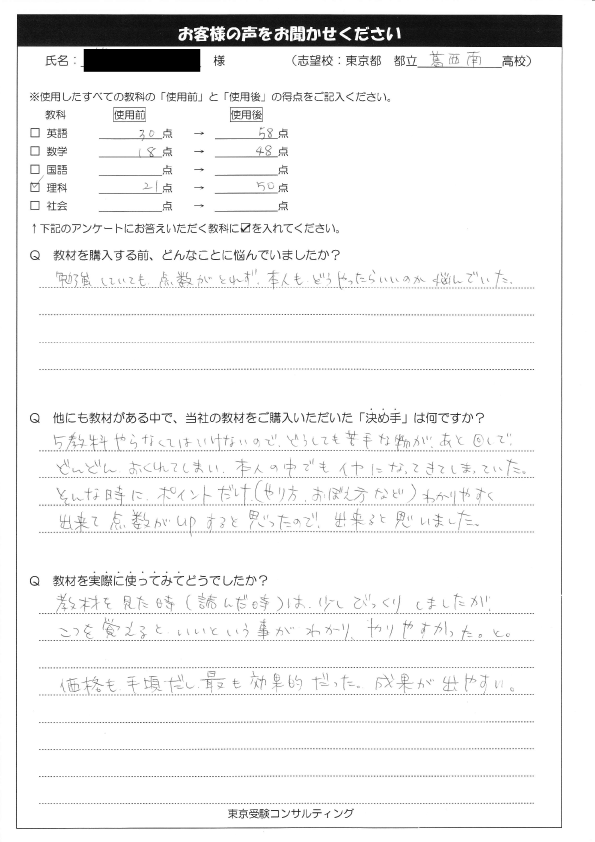 お客様の声をお聞かせください
氏名： 様 （志望校：東京都 都立 葛西南 高校）
※使用したすべての教科の「使用前」と「使用後」の得点をご記入ください。
教科 使用前 使用後
□ 英語 30 点 → 58 点
□ 数学 18 点 → 48 点
□ 国語 点 → 点
☑ 理科 21 点 → 50 点
□ 社会 点 → 点
↑下記のアンケートにお答えいただく教科に☑を入れてください。
Q 教材を購入する前、どんなことに悩んでいましたか？
勉強していても、点数がとれず、本人も、どうやったらいいのか 悩んでいた。
Q 他にも教材がある中で、当社の教材をご購入いただいた「決め手」は何ですか？
5教科やらなくてはいけないので、どうしても苦手な物が、あと回しで、
どんどん おくれてしまい、本人の中でもイヤになってきてしまっていた。
そんな時に、ポイントだけ(やり方、おぼえ方など)わかりやすく
出来て点数がupすると思ったので、出来ると思いました。
Q 教材を実際に使ってみてどうでしたか？
教材を見た時(読んだ時)は、少しびっくりしましたが、
こつを覚えると、いいという事がわかり、やりやすかった。と。
価格も手頃だし、最も効果的だった。成果が出やすい。
東京受験コンサルティング